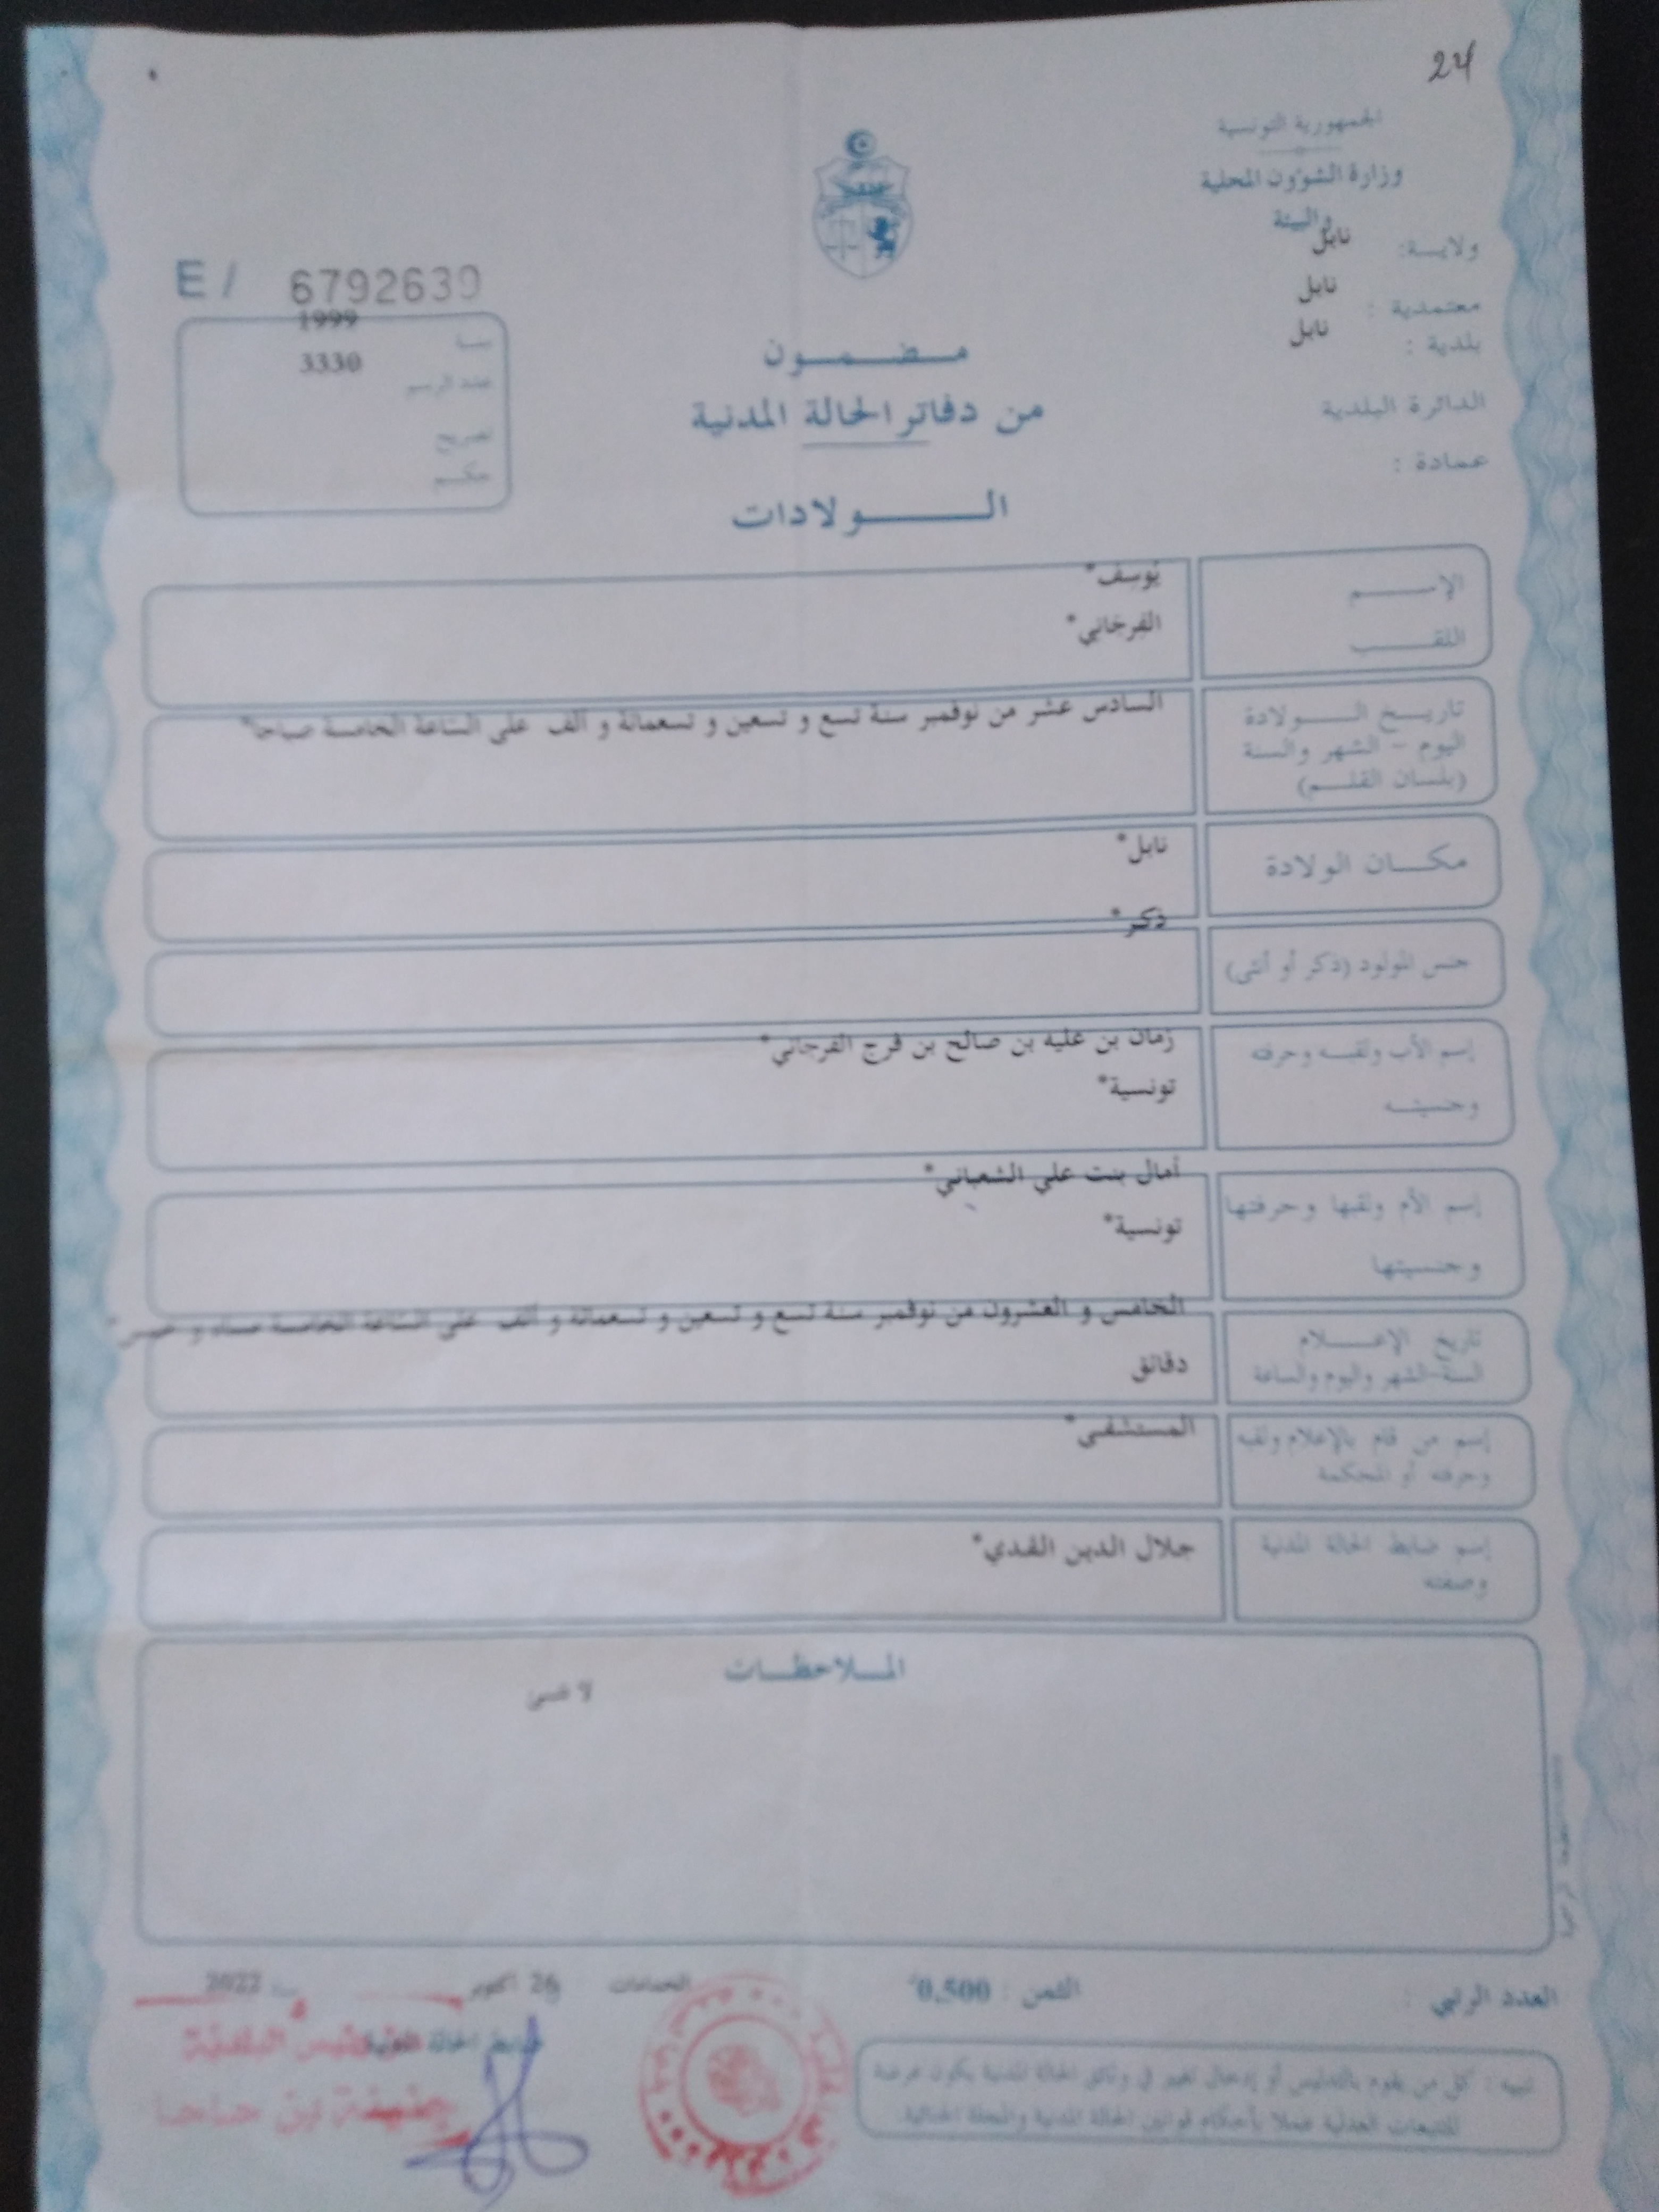 24
الجمهورية التونسية
وزارة الشؤون المحلية
والبيئة
ولايــة: نابل
معتمدية : نابل
بلدية : نابل
الدائرة البلدية
عمادة :
E / 6792639
سنة 1999
عدد الرسم 3330
تصريح
حكم
مضمون
من دفاتر الحالة المدنية
الولادات
الإسم يُوسف*
اللقب الفرجاني*
تاريخ الولادة السادس عشر من نوفمبر سنة تسع و تسعين و تسعمائة و ألف على الساعة الخامسة صباحا*
اليوم - الشهر والسنة
(بلسان القلم)
مكان الولادة نابل*
جنس المولود (ذكر أو أنثى) ذكر*
إسم الأب ولقبه وحرفته زمان بن علية بن صالح بن فرج الفرجاني*
وجنسيته تونسية*
إسم الأم ولقبها وحرفتها أمال بنت علي الشعباني*
وجنسيتها تونسية*
تاريخ الإعلام الخامس و العشرون من نوفمبر سنة تسع و تسعين و تسعمائة و ألف على الساعة الخامسة مساء و خمس*
السنة-الشهر واليوم والساعة دقائق
إسم من قام بالإعلام ولقبه المستشفى*
وحرفته أو المحكمة
إسم ضابط الحالة المدنية جلال الدين
وصفته
الملاحظات
لا شئ
العدد الرتبي :
الثمن : 0,500
الحمامات 26 أكتوبر 2022
ضابط الحالة المدنية
رئيس البلدية
تنبيه : كل من يقوم بالتدليس أو إدخال تغيير في وثائق الحالة المدنية يكون عرضة
للتتبعات العدلية عملا بأحكام قوانين الحالة المدنية والمجلة الجنائية.